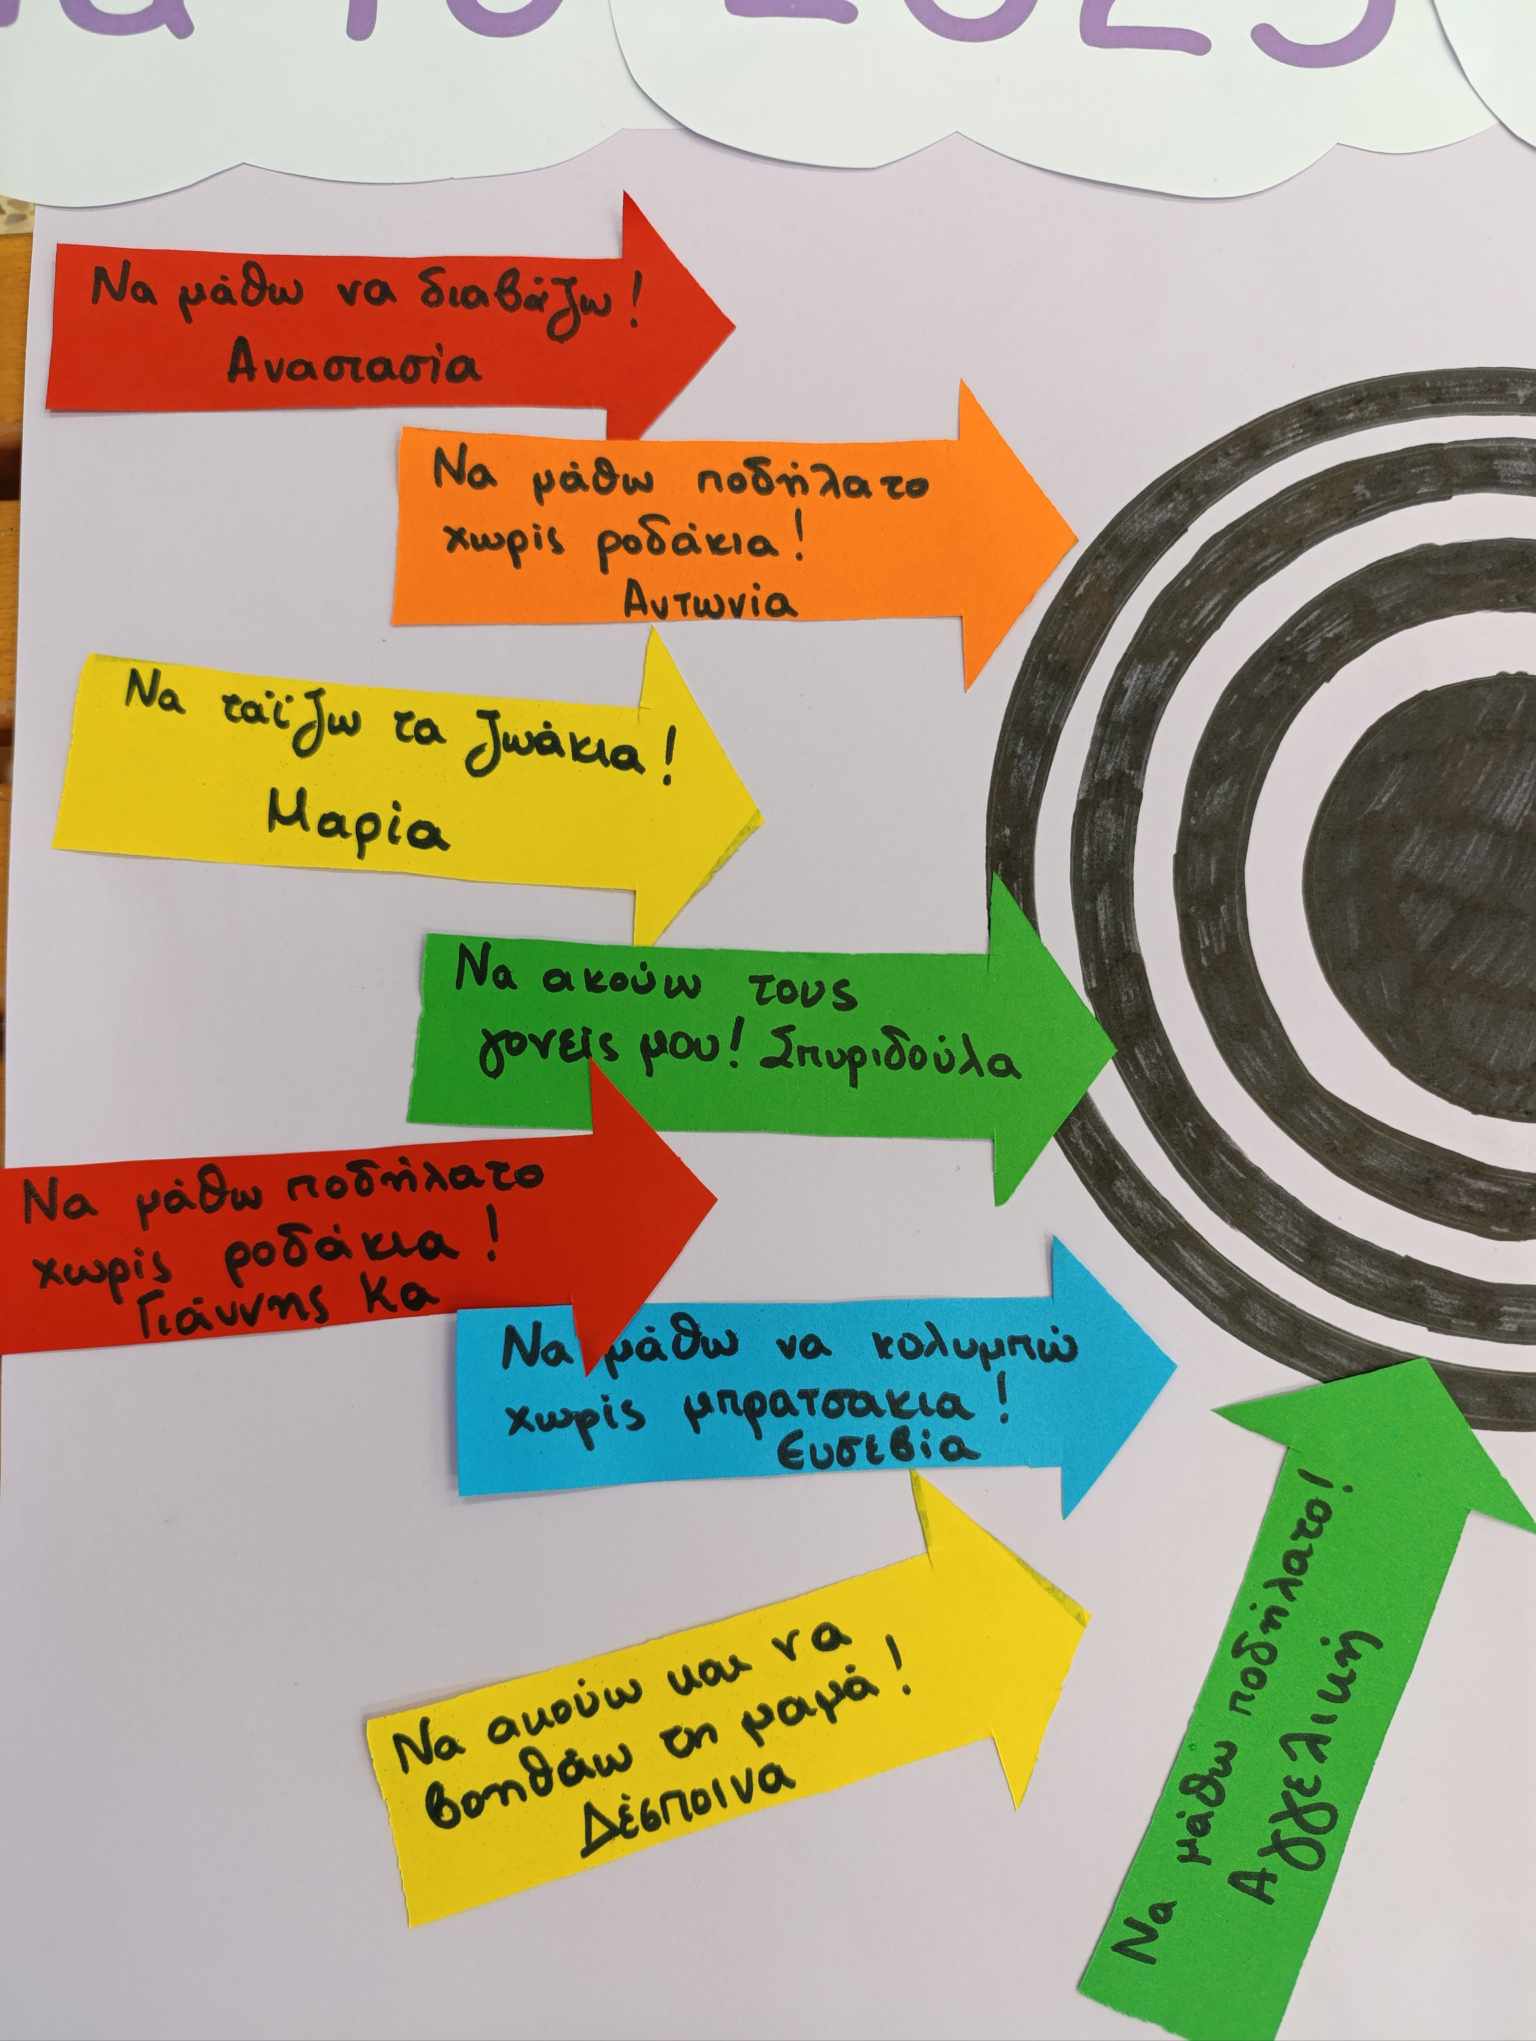 το 2025
Να μάθω να διαβάζω!
Αναστασία
Να μάθω ποδήλατο
χωρίς ροδάκια!
Αντωνία
Να ταΐζω τα ζωάκια!
Μαρία
Να ακούω τους
γονείς μου! Σπυριδούλα
Να μάθω ποδήλατο
χωρίς ροδάκια!
Γιάννης Κα
Να μάθω να κολυμπώ
χωρίς μπρατσακια!
Ευσεβία
Να ακούω και να
βοηθάω τη μαμά!
Δέσποινα
Να μάθω ποδήλατο!
Αγγελική